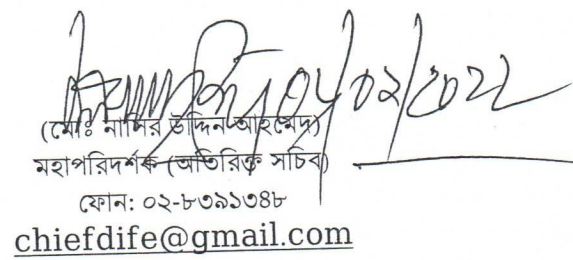 ০৮/০২/২০২২
(মোঃ নাসির উদ্দিন আহমেদ)
মহাপরিদর্শক (অতিরিক্ত সচিব)
ফোন: ০২-৮৩৯১৩৪৮
chiefdife@gmail.com